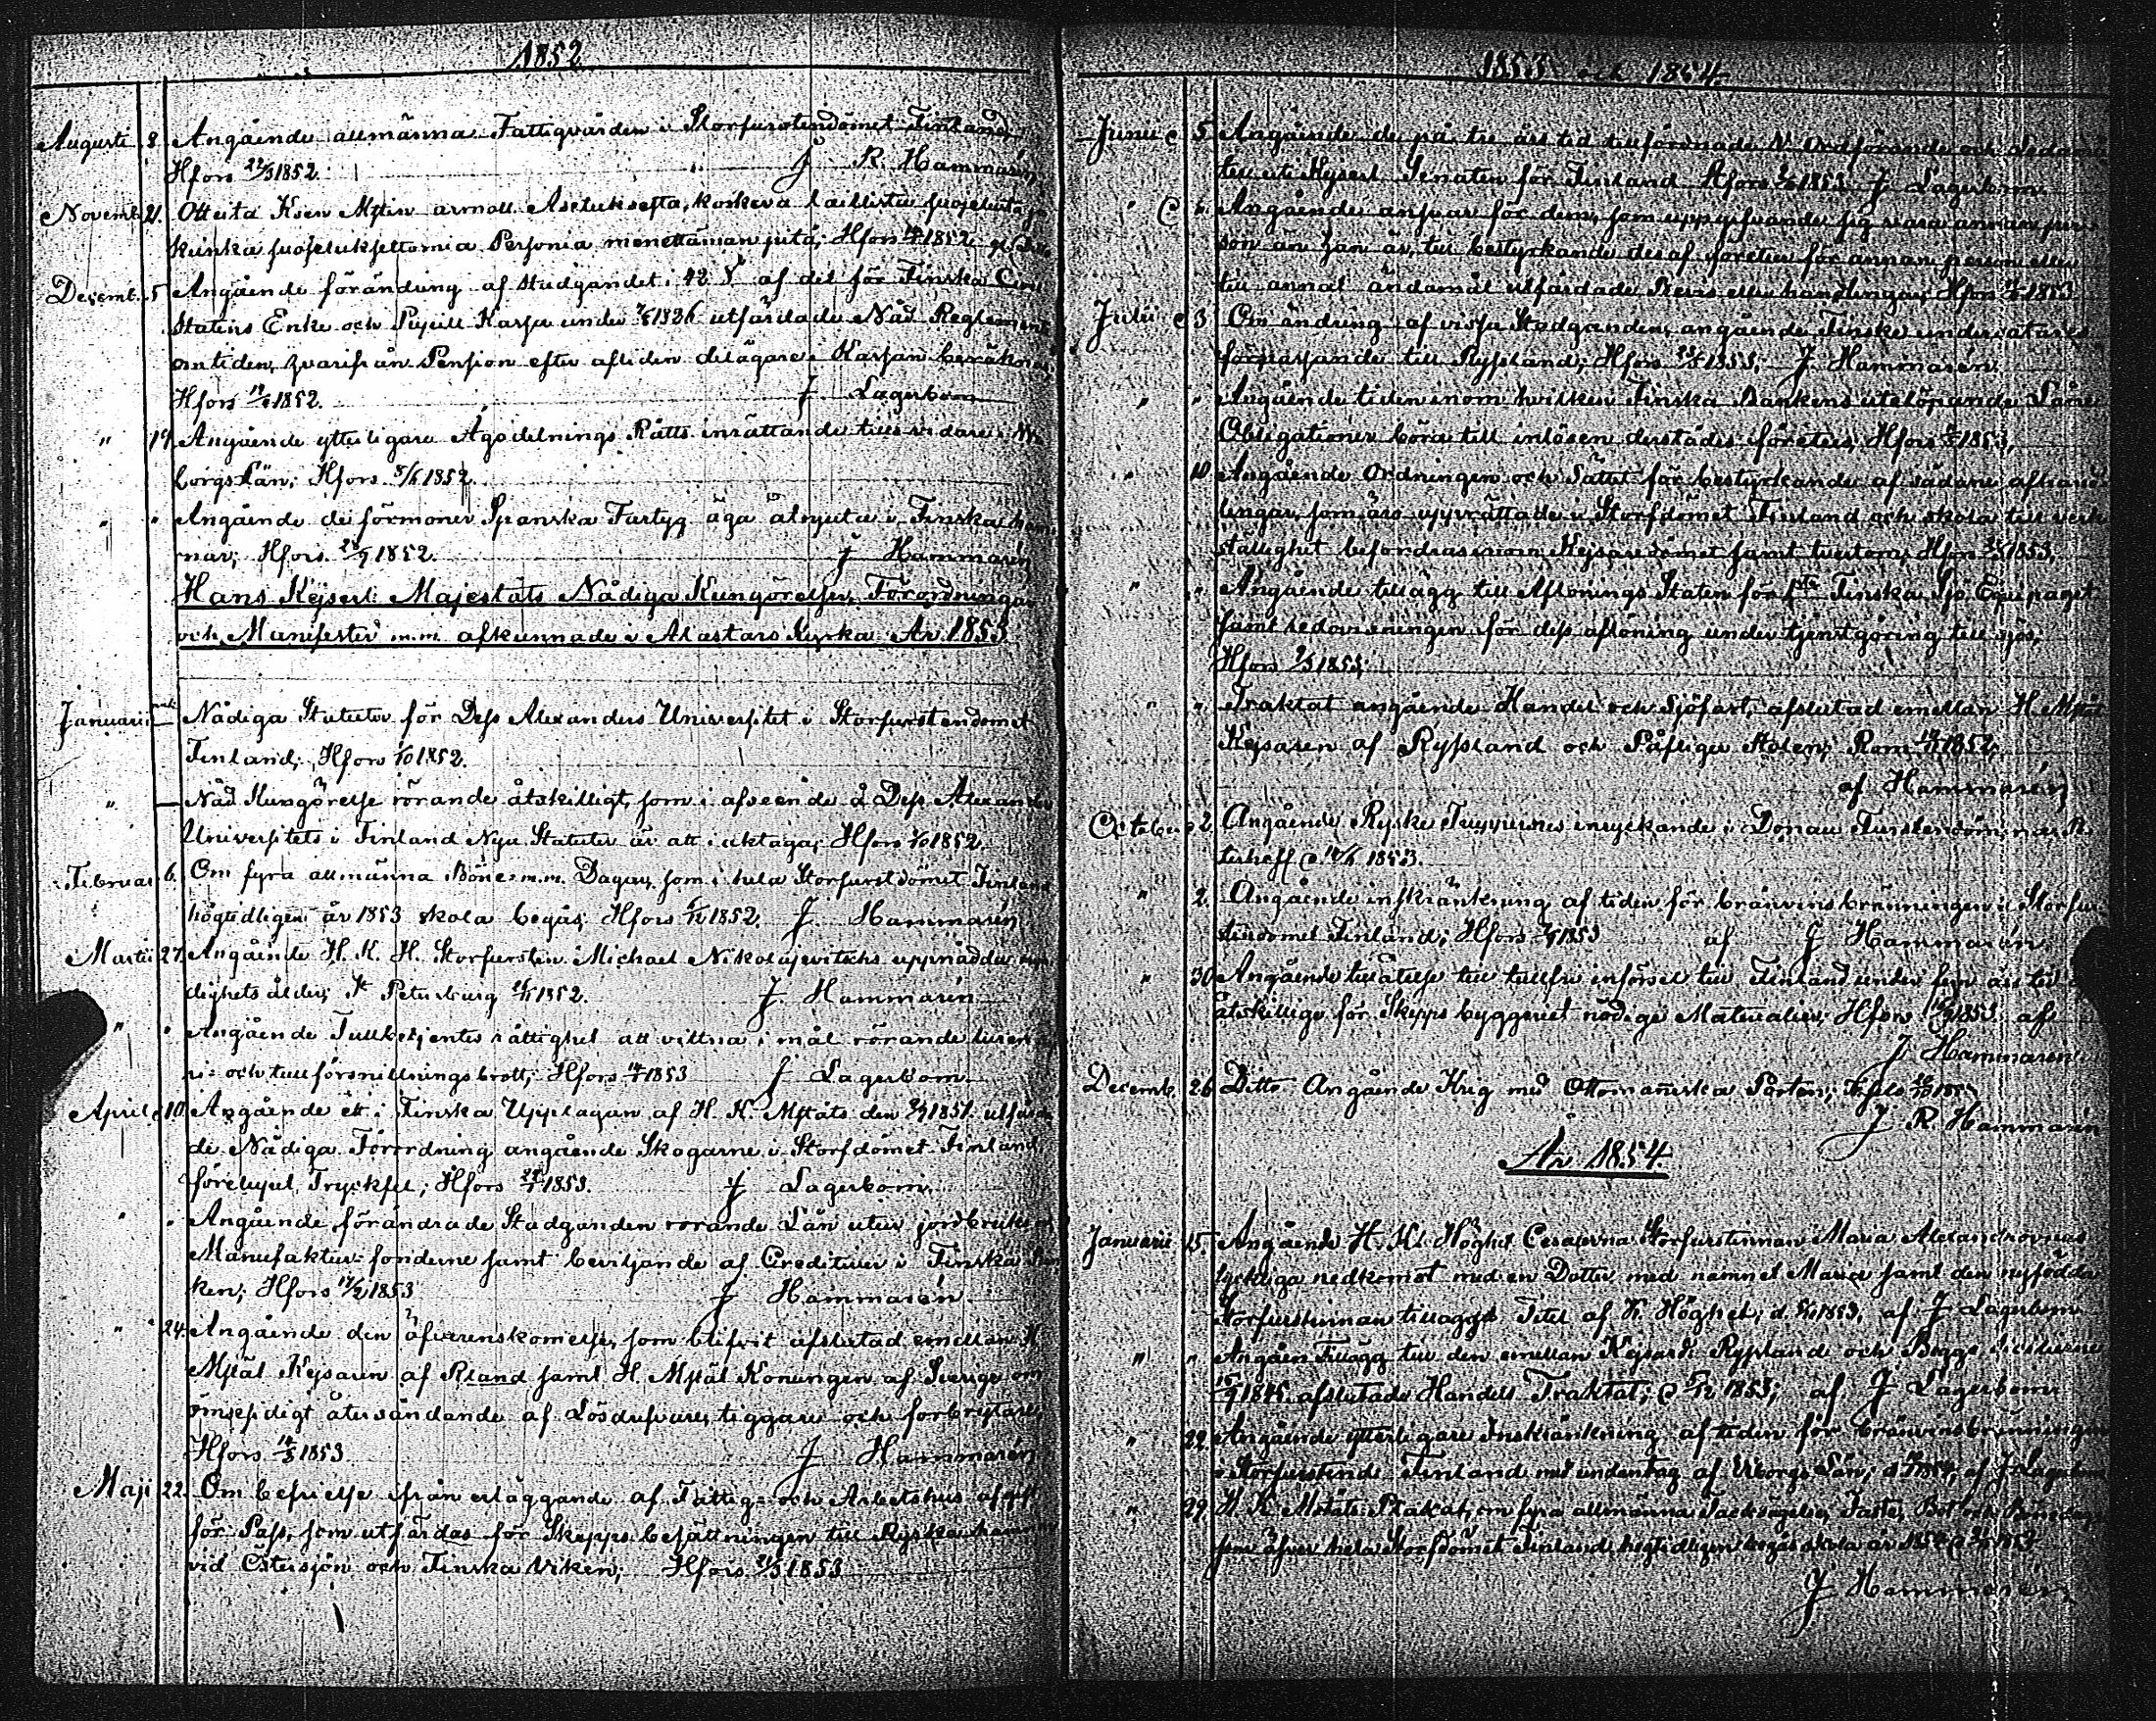 1852
Augusti 8. Angående allmänna Fattigvården i Storfurstendömet Finland
Hfors 22/3 1852. J R. Hammarén
Novemb. 21. Otteita Keis. Mjtin armoll. Asetuksesta, koskeva laillista suojelusta ja
kuinka suojeluksettomia Personia menetämän pitä; Hfors 1852
Decemb. 5 Angående förändring af stadgandet i 42 § af det för Finska Civil
Statens Enke och Pupill Kassa under 1826 utfärdade Nåd. Reglemente
om tiden, hvarifrån Pension efter afliden delägare i Kassan beräknas,
Hfors 1852. J Lagerbom
" 19. Angående ytterligare Ägodelnings Rätts inrättande tills vidare i Wi-
borgs Län; Hfors 1852.
" " Angående de förmoner Spanska Fartyg äga åtnjuta i Finska ham-
nar; Hfors 1852. J Hammarén
Hans Kejserl: Majestäts Nådiga Kungörelser, Förordningar
och Manifester m.m. afkunnade i Alastaro Kyrka År 1853.
Januarii — Nådiga Statuter för Dess Alexanders Universitet i Storfurstendömet
Finland; Hfors 1/10 1852.
" — Nåd. Kungörelse rörande åtskilligt, som i afseende å Dess Alexanders
Universitets i Finland Nya Statuter är att iakttaga; Hfors 1/10 1852.
Februar 6. Om fyra allmänna Böne- m.m. Dagar, som i hela Storfurstdömet Finland
högtidligen år 1853 skola begås; Hfors 1852. J. Hammarén
Martii 27. Angående H. K. H. Storfursten Michael Nikolajevitschs uppnådda myn-
dighets ålder; St Petersburg 1852. J. Hammarén
" " Angående Tullbetjentes rättighet att vittna i mål rörande lurendrä-
ri- och tullförsnillningsbrott; Hfors 1853 J Lagerbom
April 10. Angående ett i Finska Upplagan af H. K. Mjtäts den 1851 utfärda-
de Nådiga Förordning angående Skogarne i Storfdömet Finland,
förelupet Tryckfel; Hfors 1853. J Lagerbom
" " Angående förändrade Stadganden rörande Lån utur jordbruks och
Manufaktur-fonderne samt beviljande af Creditiver i Finska Ban-
ken; Hfors 1853 J Hammarén
" 24. Angående den öfverenskomelse, som blifvit afslutad emellan H.
Mjtät Kejsaren af Rland samt H. Mjtät Konungen af Sverige om
ömsesidigt återsändande af Lösdrifvare, tiggare och förbrytare,
Hfors 1853 J Hammarén
Maji 22. Om befrielse ifrån erläggande af Fattig- och Arbetshus afgift
för Pass, som utfärdas för Skepps besättningen till Ryska hamnar
vid Östersjön och Finska Viken; Hfors 1853
1853 och 1854
Junii 5 Angående de på tre års tid tillförordnade V. Ordförande och Ledamö-
ter uti Kejserl Senaten för Finland Hfors 1853 J Lagerbom
" " Angående ansvar för dem, som uppgifvande sig vara annan per-
son än han är, till bestyrkande deraf företer för annan person eller
till annat ändamål utfärdade Bevis eller handlingar; Hfors 1853
Julii 3 Om ändring af vissa Stadganden, angående Finske undersåtares
förpassande till Ryssland; Hfors 1853; J. Hammarén.
" " Angående tiden inom hvilken Finska Bankens utelöpande Låne
Obligationer böra till inlösen derstädes företes; Hfors 1853,
" 10 Angående Ordningen och Sättet för bestyrkande af sådane afhand-
lingar, som äro upprättade i Storfdömet Finland och skola till verk-
ställighet befordras inom Kejsaredömet samt tvertom; Hfors 1853.
" " Angående tillägg till Aflönings Staten för 1sta Finska Sjö Equipaget
samt redovisningen för dess aflöning under tjenstgöring till sjös;
Hfors 1853;
" " Traktat angående Handel och Sjöfart, afslutad emellan H. Mjtät
Kejsaren af Ryssland och Påfliga Stolen; Rom 1852,
af Hammarén
October 2. Angående Ryske Truppernes inryckande i Donau Furstendömena; Pe-
terhoff d 14/6 1853.
" 2. Angående inskränkning af tiden för bränvins bränningen i Storfur-
stendömet Finland; Hfors 1853 af J Hammarén
" 30. Angående tillåtelse till tullfri införsel till Finland under fem års tid af
åtskillige för Skepps byggeriet nödige Materialier; Hfors 1853 af
J Hammarén
Decemb. 26 Ditto Angående Krig med Ottomaniska Porten;
J R. Hammarén
År 1854.
Januarii 15. Angående H. K. Höghet Cesarevna Storfurstinnan Maria Alexandrovnas
lyckliga nedkomst med en Dotter med namnet Maria samt den nyfödda
Storfurstinnan tillaggd Titel af K. Höghet; d. 1853, af J Lagerbom
" " Angåen Tillägg till den emellan Kejsard. Ryssland och Begge Sicilierne
1845 afslutade Handels Traktat; d 1853; af J Lagerbom
" 22. Angående ytterligare Inskränkning af tiden för bränvinsbränningen
i Storfurstend. Finland med undantag af Uleåborgs Län; d 1854, af J Lagerbom
" 29. H. K. Mstäts Plakat, om fyra allmänna Tacksägelse, Faste, Bot och Bönedagar,
som öfver hela Storfdömet Finland högtidligen begås skola år 1854; d 1853
J Hammarén